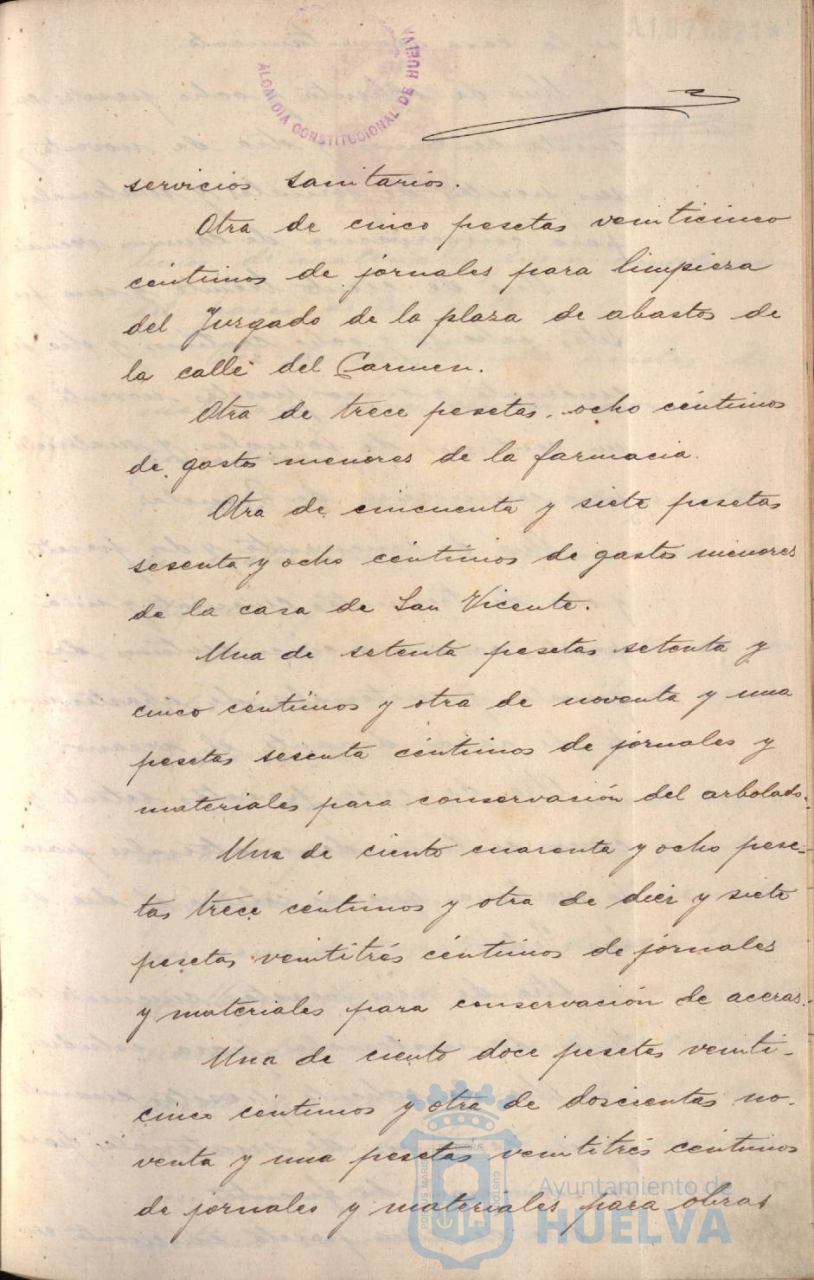 ALCALDIA CONSTITUCIONAL DE HUELVA
servicios sanitarios.
Otra de cinco pesetas veinticinco
céntimos de jornales para limpieza
del Juzgado de la plaza de abastos de
la calle del Carmen.
Otra de trece pesetas, ocho céntimos
de gastos menores de la farmacia.
Otra de cincuenta y siete pesetas
sesenta y ocho céntimos de gastos menores
de la casa de San Vicente.
Una de setenta pesetas setenta y
cinco céntimos y otra de noventa y una
pesetas sesenta céntimos de jornales y
materiales para conservación del arbolado.
Una de ciento cuarenta y ocho pese-
tas trece céntimos y otra de diez y siete
pesetas veintitrés céntimos de jornales
y materiales para conservación de aceras.
Una de ciento doce pesetas veinti-
cinco céntimos y otra de doscientas no-
venta y una pesetas veintitrés céntimos
de jornales y materiales para obras
Ayuntamiento de
HUELVA